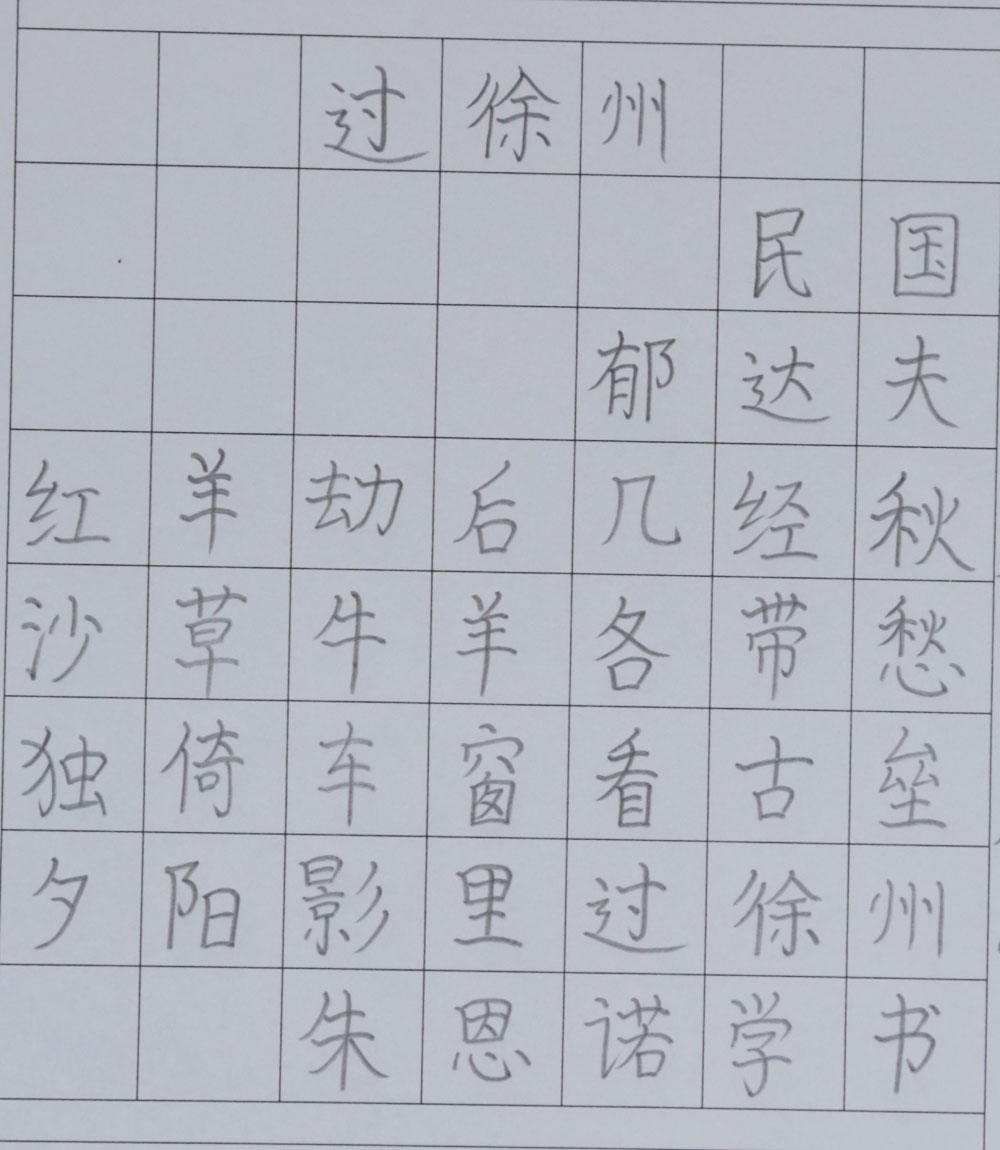 过徐州
民国
郁达夫
红羊劫后几经秋
沙草牛羊各带愁
独倚车窗看古垒
夕阳影里过徐州
朱恩诺学书